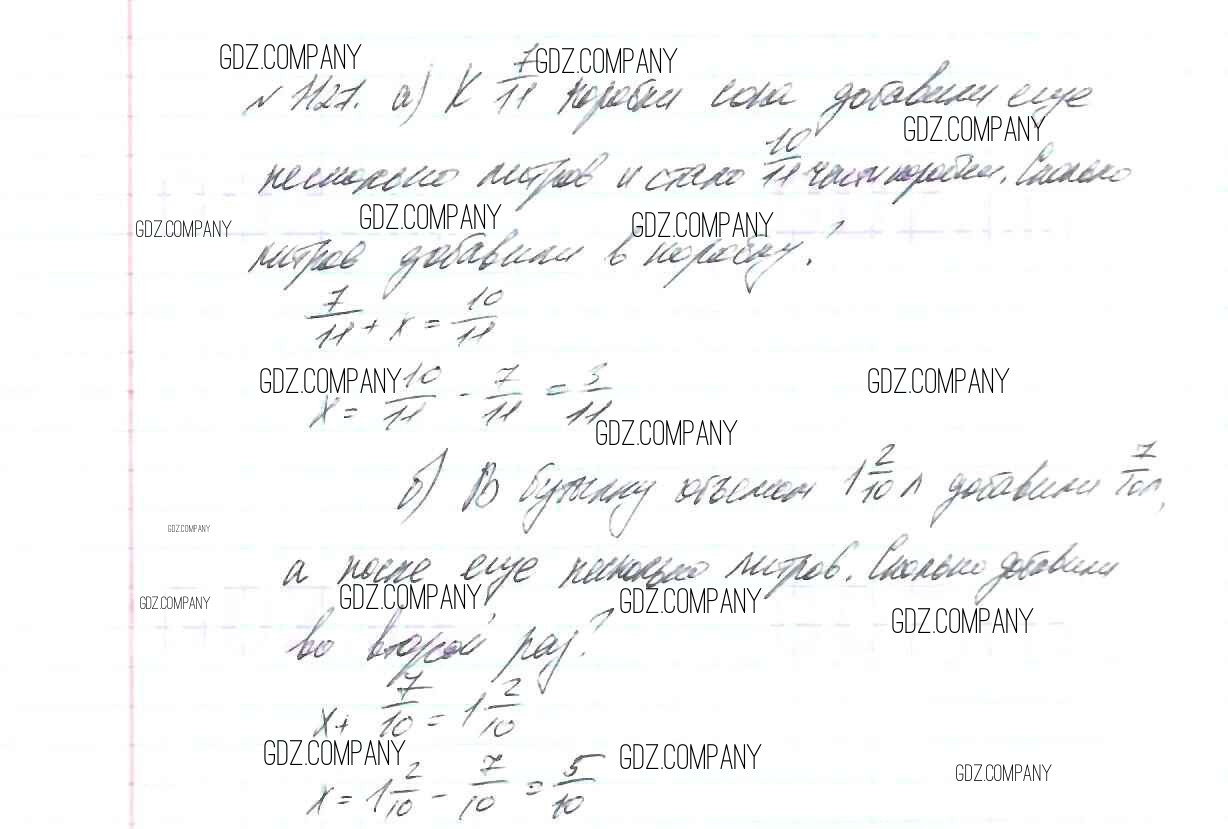 GDZ.COMPANY GDZ.COMPANY
№ 1127. а) К 7/11 коробки сока добавили еще
GDZ.COMPANY
несколько литров и стало 10/11 части коробки. Сколько
GDZ.COMPANY GDZ.COMPANY GDZ.COMPANY
литров добавили в коробку?
7/11 + x = 10/11
GDZ.COMPANY GDZ.COMPANY
x = 10/11 - 7/11 = 3/11
GDZ.COMPANY
б) В бутылку объемом 1 2/10 л добавили 7/10 л,
GDZ.COMPANY
а после еще несколько литров. Сколько добавили
GDZ.COMPANY GDZ.COMPANY GDZ.COMPANY GDZ.COMPANY
во второй раз?
x + 7/10 = 1 2/10
GDZ.COMPANY GDZ.COMPANY GDZ.COMPANY
x = 1 2/10 - 7/10 = 5/10